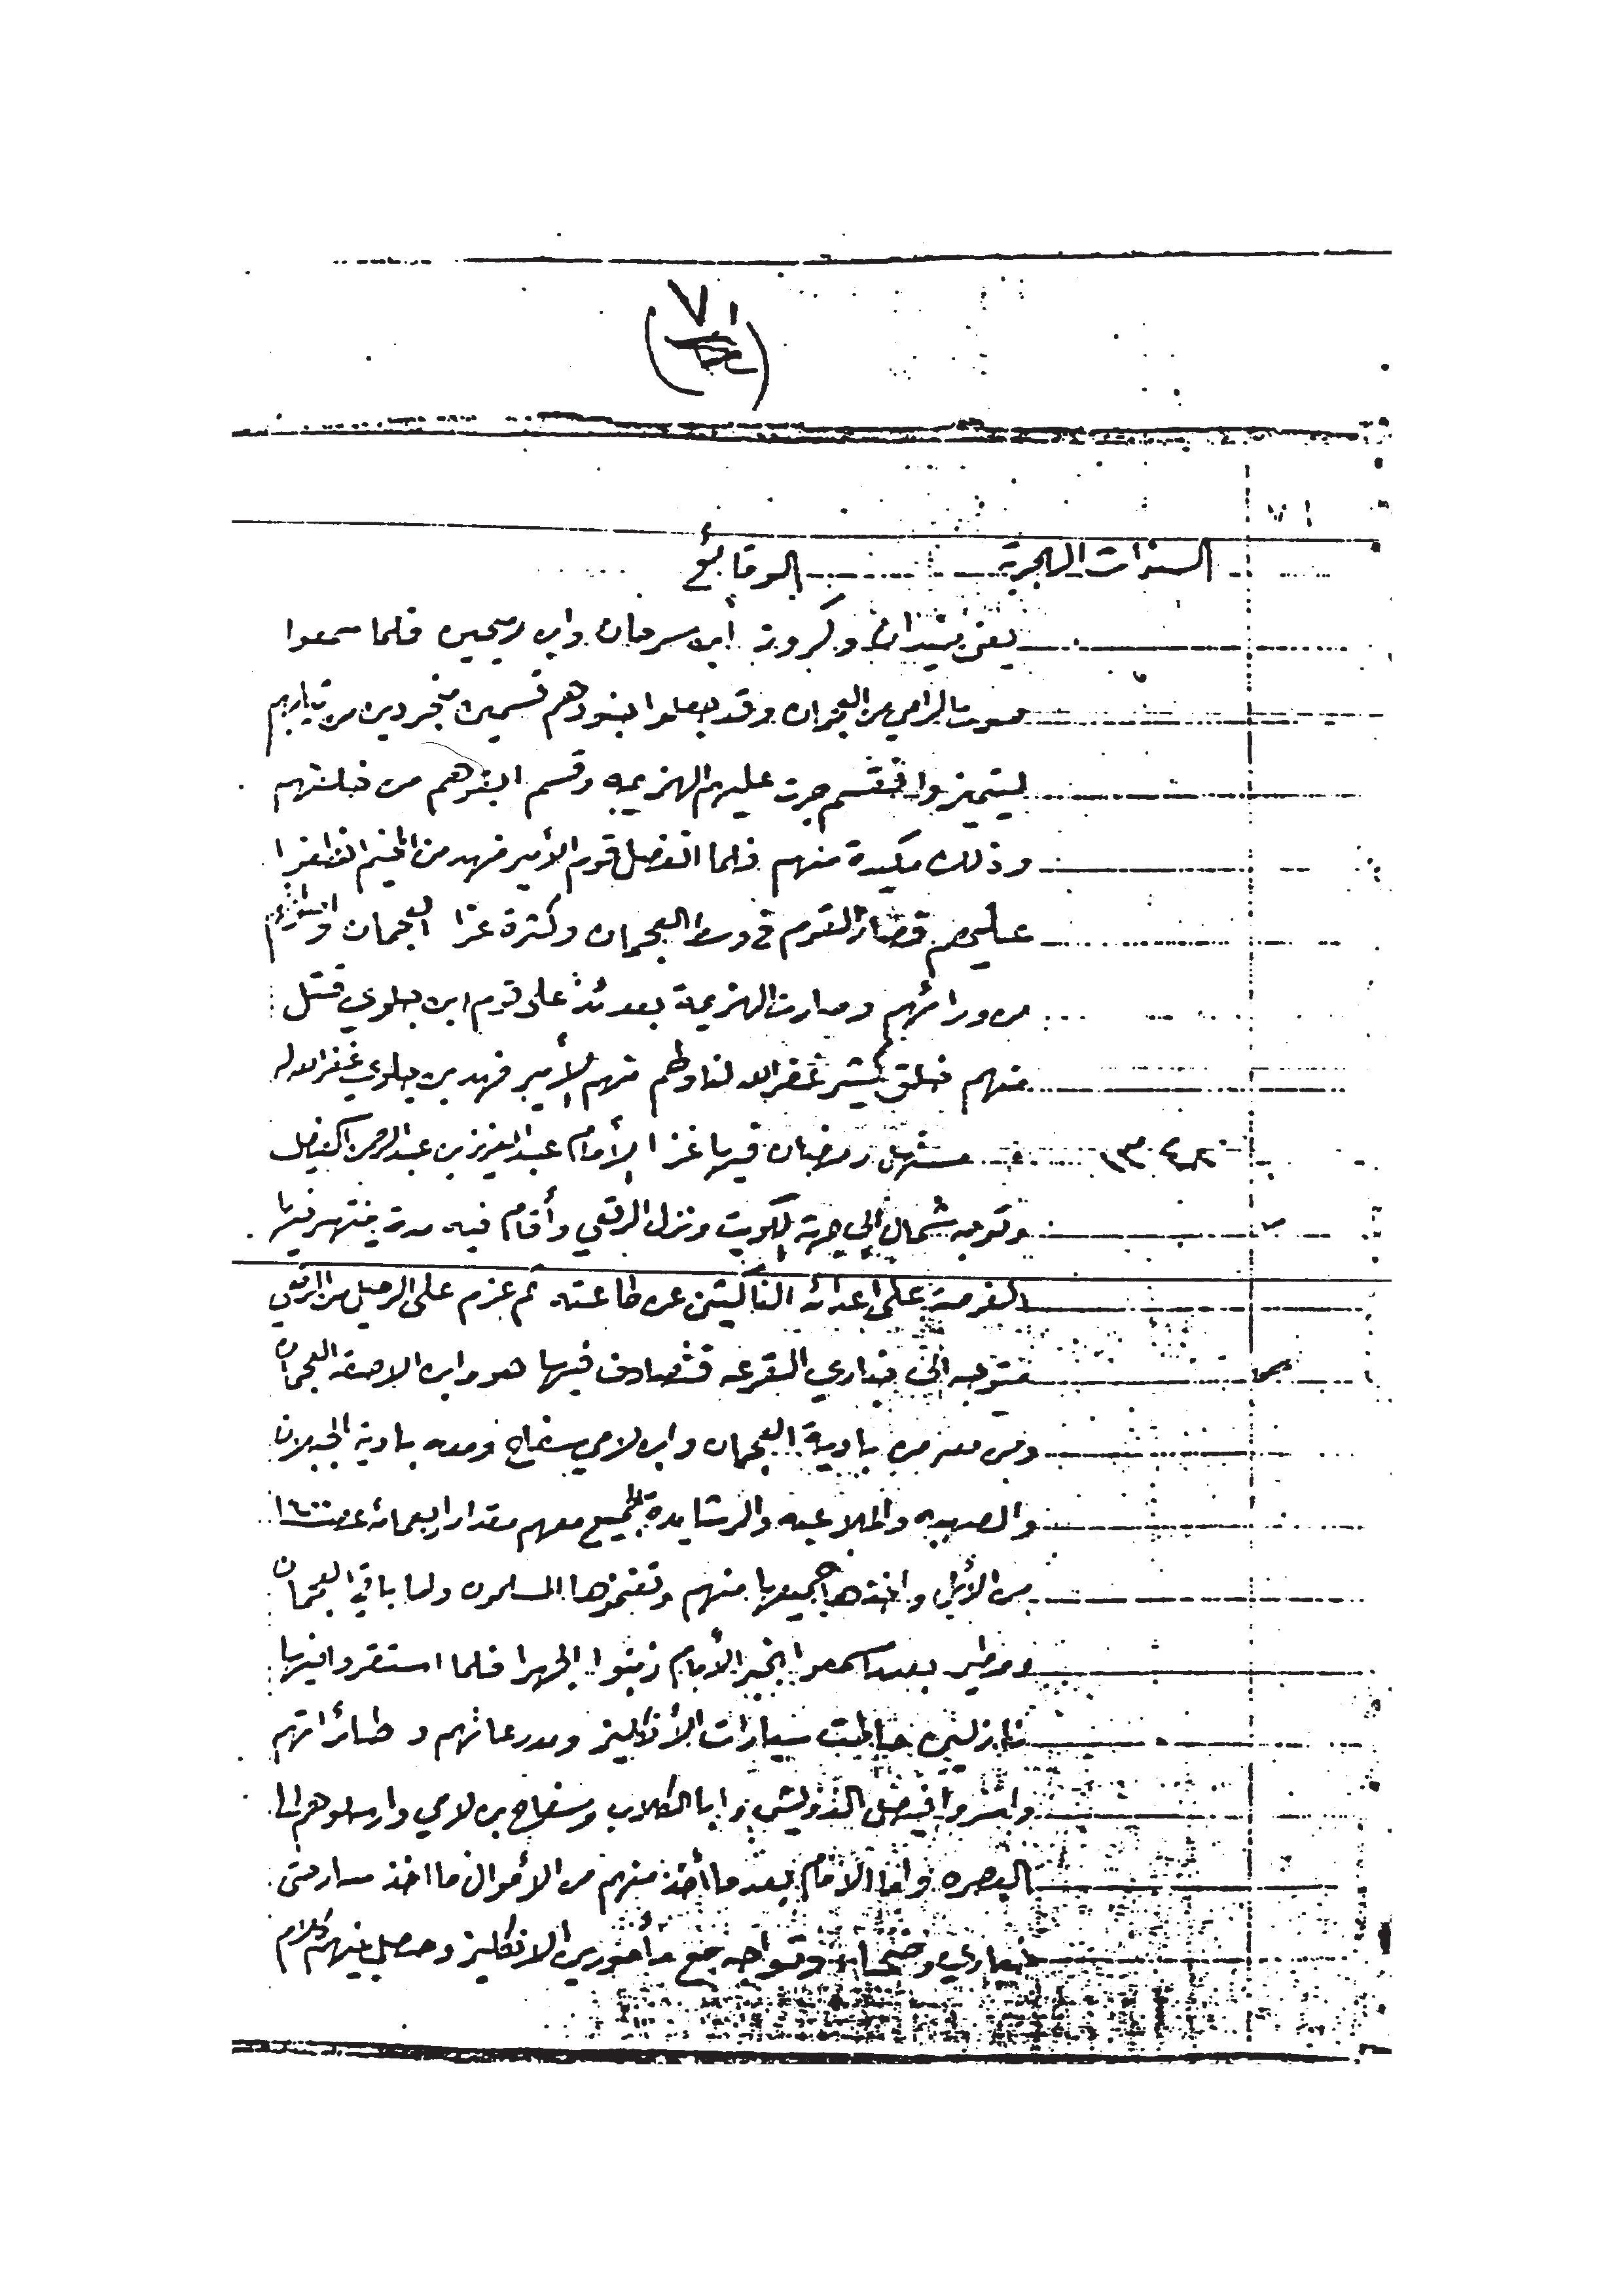 ٧١
٧١
السنوات الهجرية الوقائع
يعني بندان وكروز ابن سرحان وابن فلما سمعوا
صوت الرامي من العجمان وقد جعلوا جنودهم قسمين متجردين من ثيابهم
ليتميزوا فقسم جرت عليهم الهزيمه وقسم من خلفهم
وذلك مكيدة منهم فلما انفصل قوم الأمير فهد من المخيم
عليهم فصار القوم في وسط العجمان وكثرة العجمان
من ورائهم وصارت الهزيمة بعدئذ على قوم ابن جلوي قتل
منهم خلق كثير غفر الله لنا ولهم منهم الأمير فهد بن جلوي غفر الله له
١٣٤٨ في مستهل رمضان فيها غزا الأمام عبد العزيز بن عبد الرحمن الفيصل
وتوجه شمال الى جهة الكويت ونزل الرقعي وأقام فيه مدة ينتهز فيها
الفرصة على اعدائه الناكثين عن طاعته ثم عزم على الرحيل من الرقعي
متوجه الى خباري القرعه فتصادف فيها هو وابن الاصقه العجمان
ومن معه من بادية العجمان وابن لامي سفاح ومعه بادية الجبلان
والصهبه والملاعبه والرشايدة الجميع معهم مقدار اربعمائة
من الأبل واخذها جميعها منهم وتغنموها المسلمون ولما باقي العجمان
ومطير بعدما سمعوا بخبر الأمام زبنوا الجهرا فلما استقروا فيها
نازلين حاطت سيارات الأنكليز ومدرعاتهم وطائراتهم
وأسروا فيصل الدويش وابا الكلاب وسفاح بن لامي وارسلوهم الى
البصره واما الامام بعدما أخذ منهم من الأموال ما اخذ سار حتى
خباري وضحاء وتواجه مع مأمورين الانكليز وحصل بينهم كلام